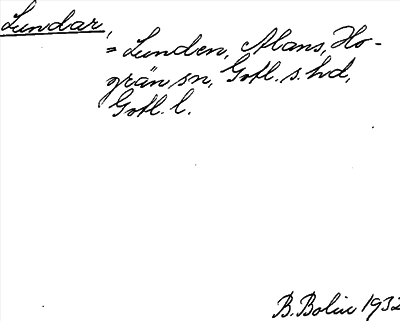 Lundar,
= Lunden, Alans, Ho-
grän sn, Gotl. s. hd,
Gotl. l.
B. Bolin 1932